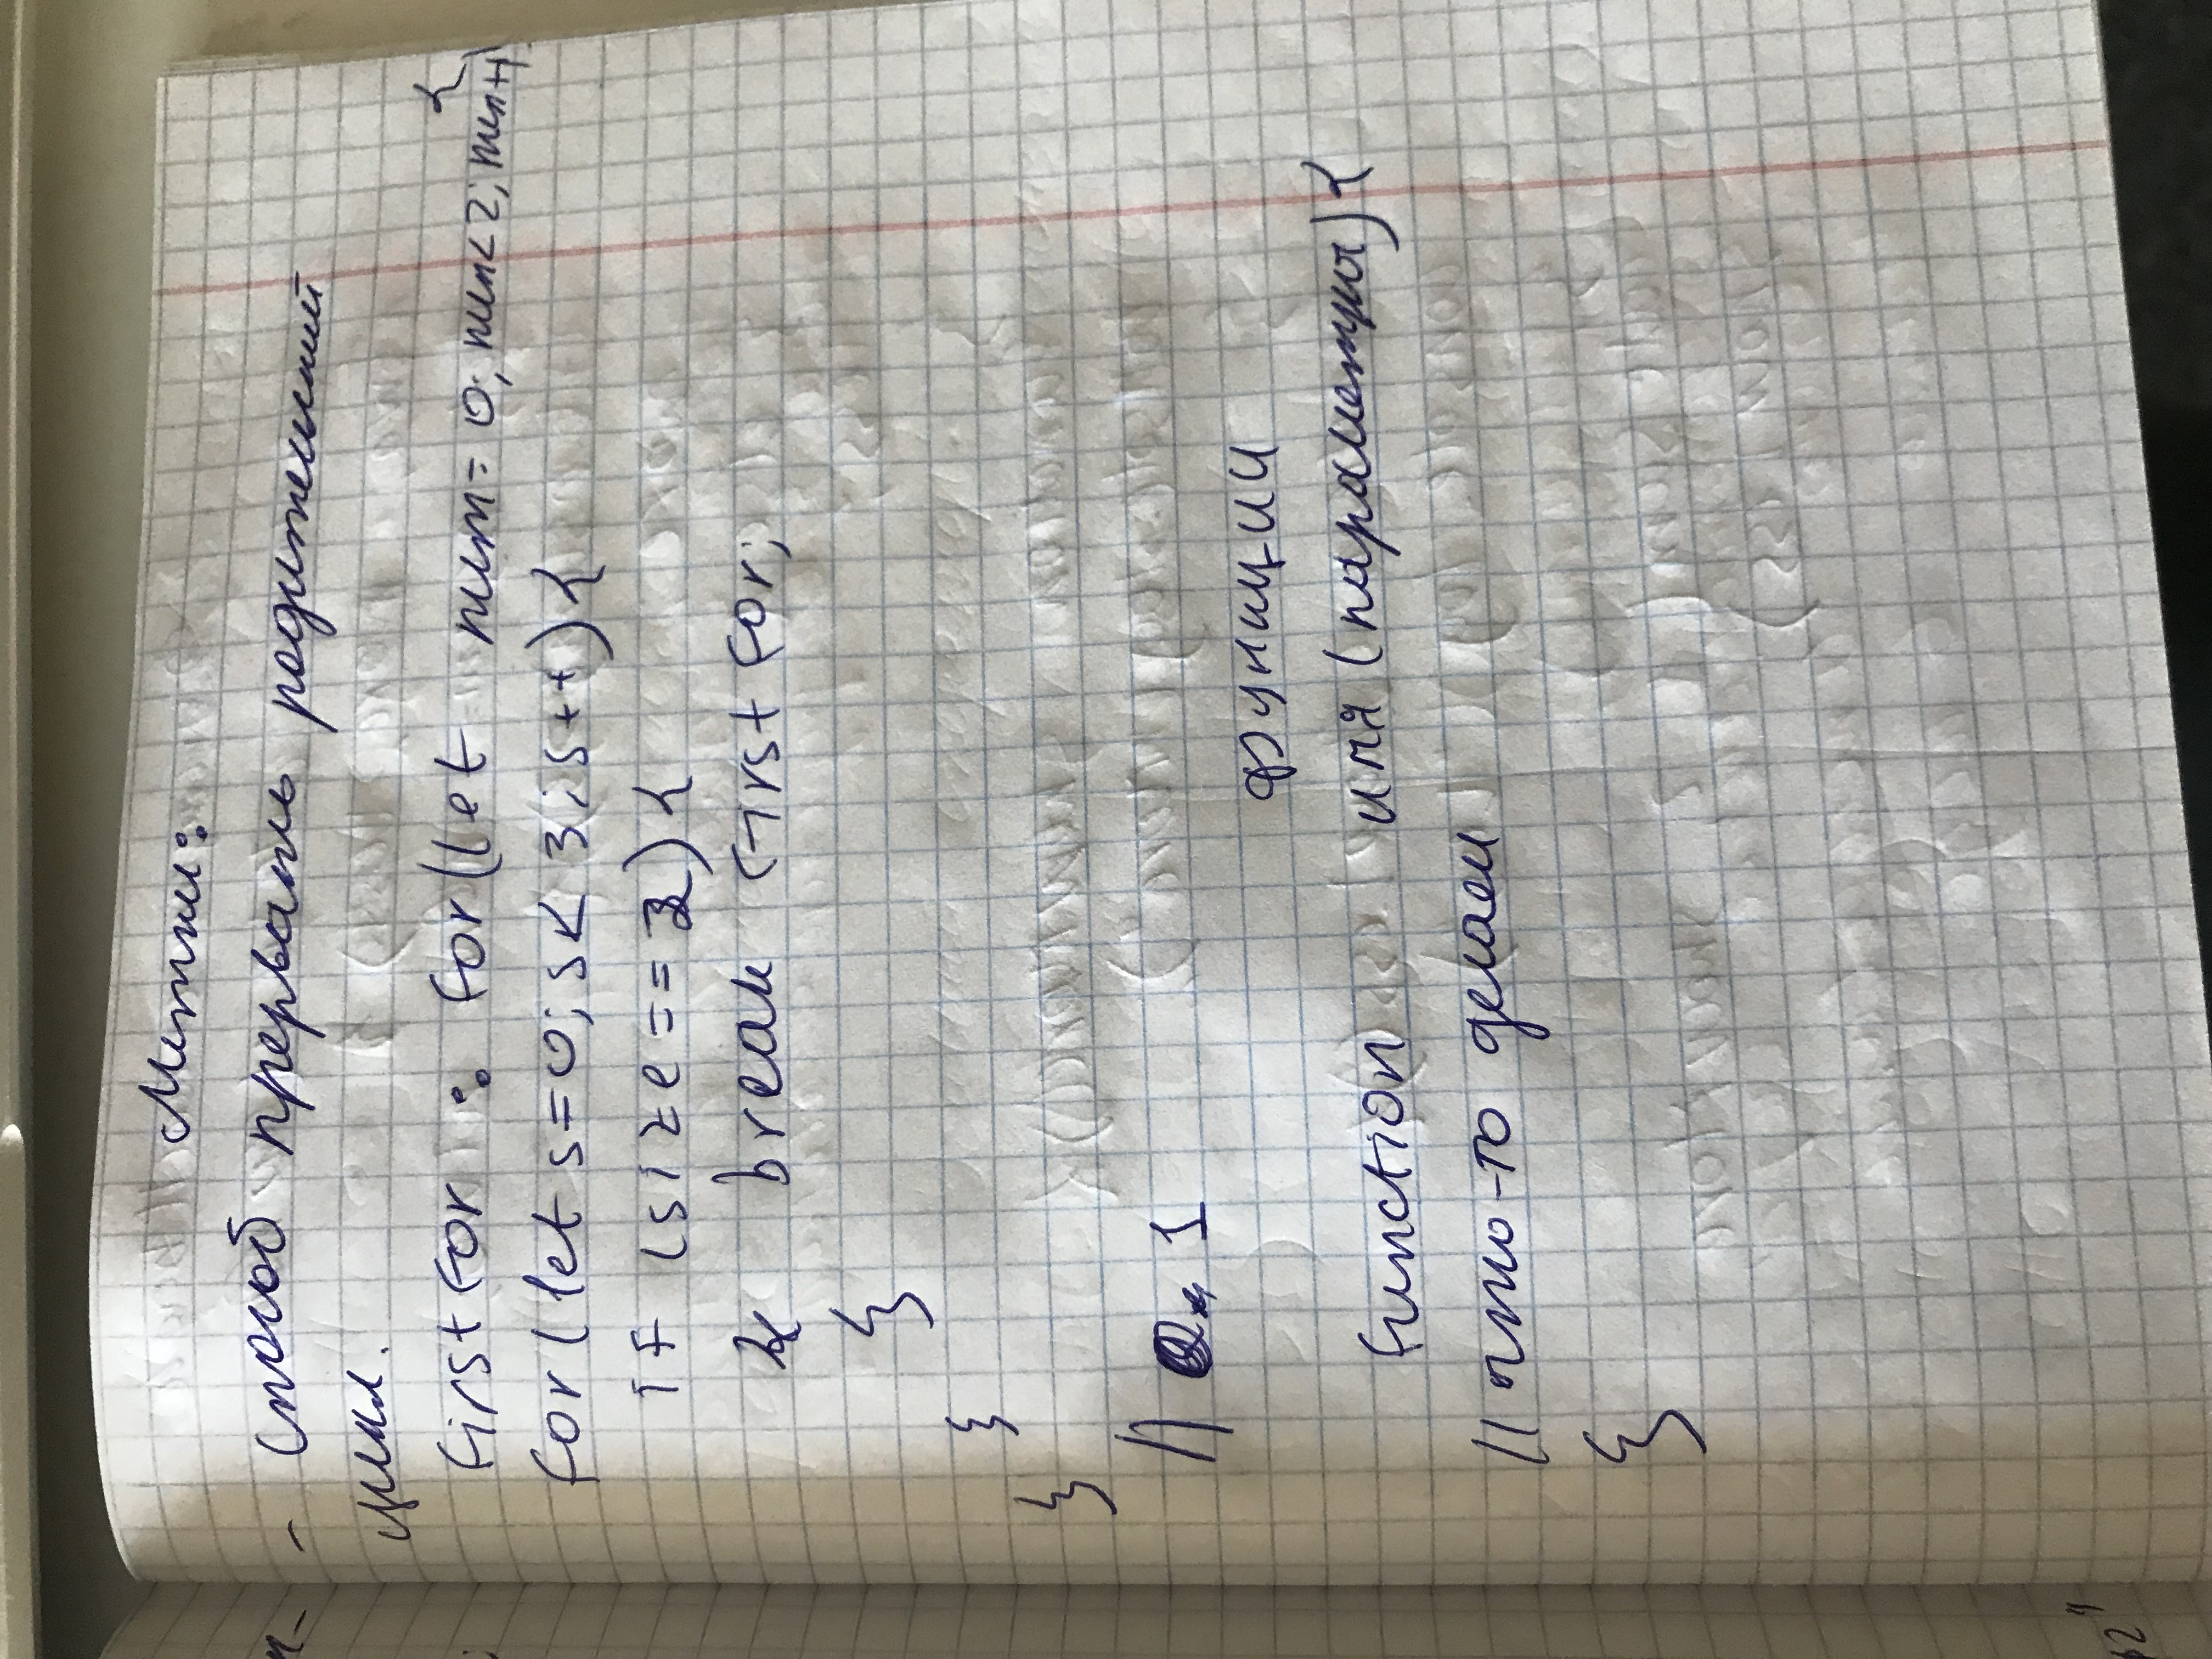 Метки:
- способ прервать родительский
цикл.
firstfor : for(let num= 0; num<2; num++) {
for(let s=0; s< 3; s++) {
if (size == 2) {
break firstfor;
}
}
}
// 1
функции
function имя (параметры) {
// что-то делаем
}